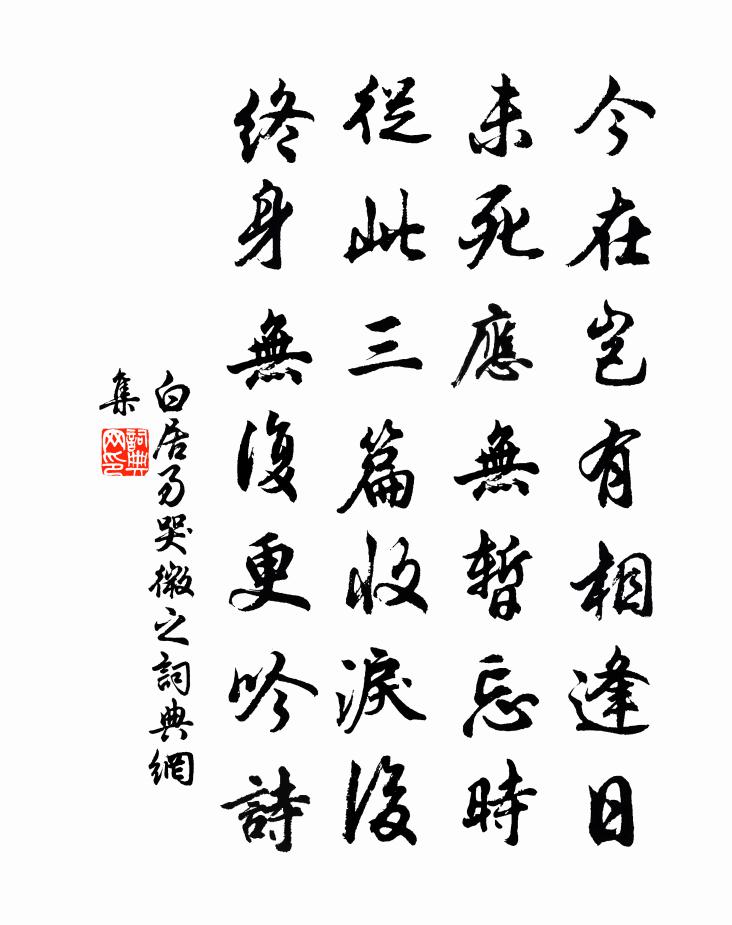 今在豈有相逢日
未死應無暫忘時
從此三篇收淚後
終身無復更吟詩
白居易哭微之詞典網
集
詞典
网印